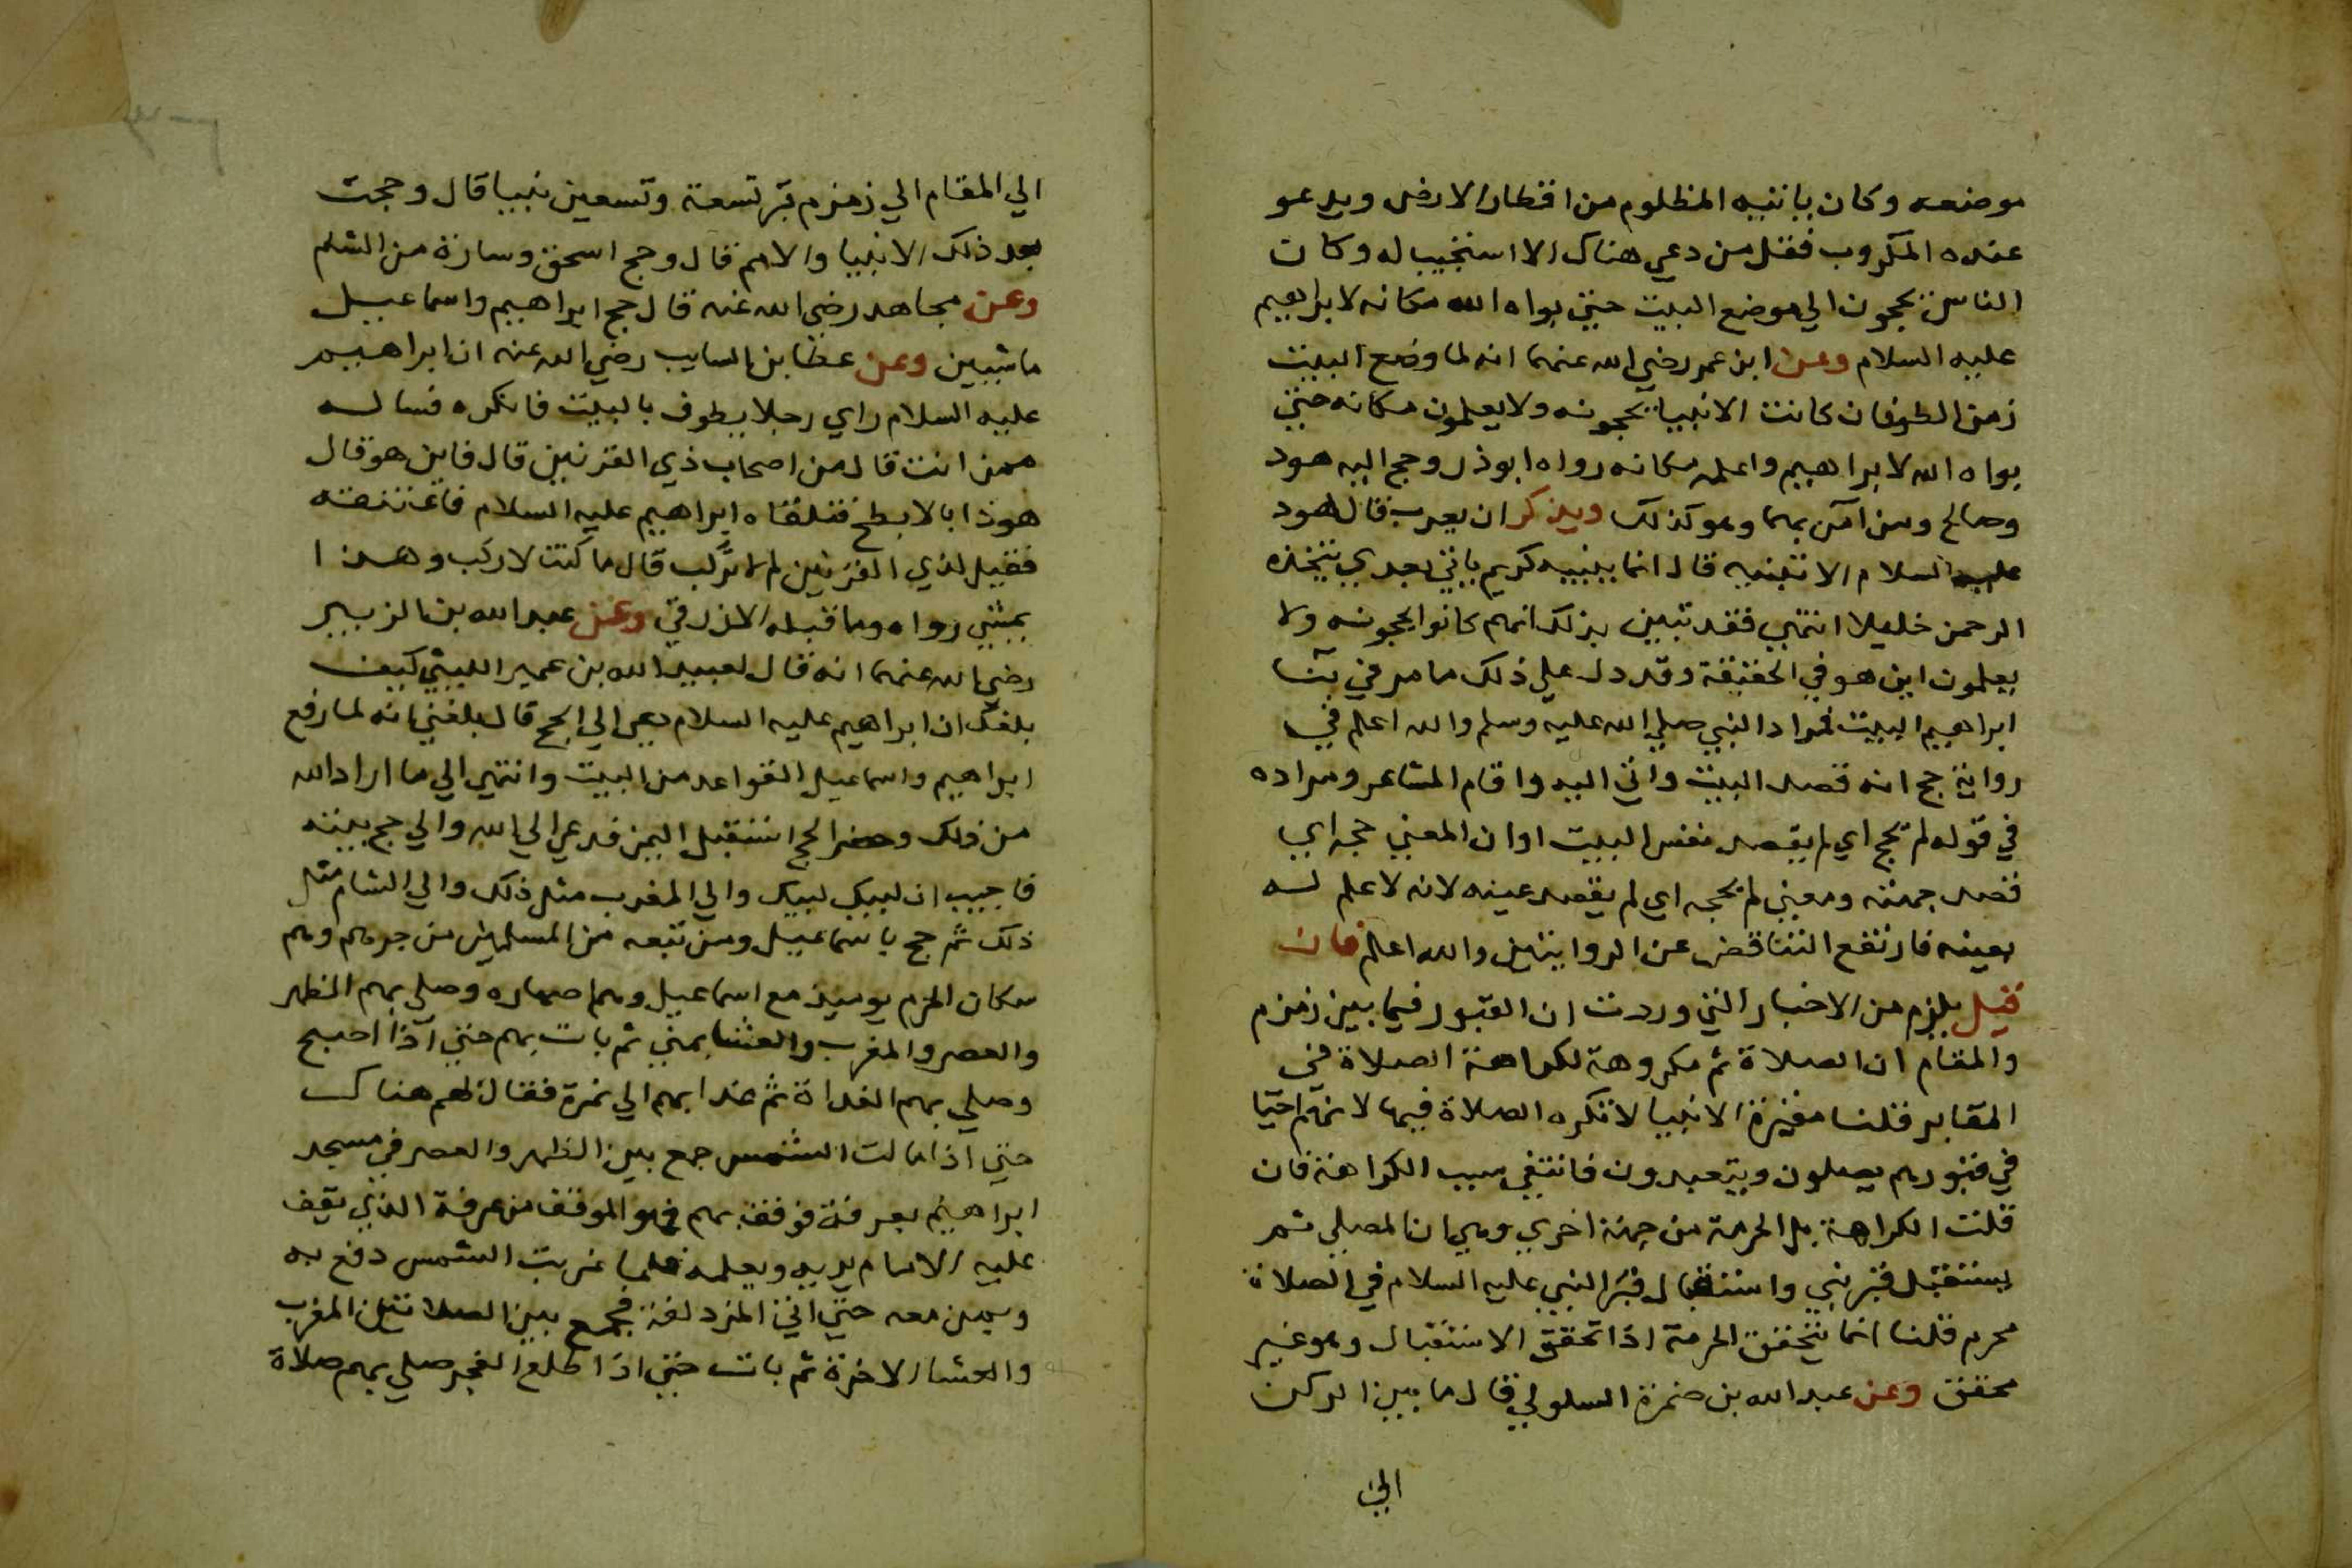 موضعه وكان ياتيه المظلوم من اقطار الارض ويدعو
عنده المكروب فقل من دعي هناك الا استجيب له وكان
الناس يحجون الي موضع البيت حتي بواه الله مكانه لابراهيم
عليه السلام وعن ابن عمر رضي الله عنهما انه لما وضع البيت
زمن الطوفان كانت الانبيا يحجونه ولا يعلمون مكانه حتي
بواه الله لابراهيم واعلمه مكانه رواه ابوذر وحج اليه هود
وصالح ومن آمن بهما وهو كذلك ويذكر ان يعرب قال لهود
عليه السلام الا تبنيه قال انما يبنيه كريم ياتي بعدي يتخذه
الرحمن خليلا انتهي فقد تبين بذلك انهم كانوا يحجونه ولا
يعلمون اين هو في الحقيقة وقد دل علي ذلك ما مر في بنا
ابراهيم البيت فمراد النبي صلي الله عليه وسلم والله اعلم في
رواية حج انه قصد البيت واتي اليه واقام المشاعر ومراده
في قوله لم يحج اي لم يقصد نفس البيت او ان المعني حجه اي
قصد جهته ومعني لم يحجه اي لم يقصد عينه لانه لا علم له
بعينه فارتفع التناقض عن الروايتين والله اعلم فان
قيل يلزم من الاخبار التي وردت ان القبور فيما بين زمزم
والمقام ان الصلاة ثم مكروهة لكراهة الصلاة في
المقابر قلنا مقبرة الانبيا لا تكره الصلاة فيها لانهم احيا
في قبورهم يصلون ويتعبدون فانتفي سبب الكراهة فان
قلت الكراهة بل الحرمة من جهة اخري وهي ان المصلي ثم
يستقبل قبر نبي واستقبال قبر النبي عليه السلام في الصلاة
محرم قلنا انما يتحقق الحرمة اذا تحقق الاستقبال وهو غير
محقق وعن عبد الله بن ضمرة السلولي قال ما بين الركن
الي
الي المقام الي زمزم قبر تسعة وتسعين نبيا قال وحجت
بعد ذلك الانبيا والامم قال وحج اسحق وسارة من الشام
وعن مجاهد رضي الله عنه قال حج ابراهيم واسماعيل
ماشيين وعن عطا بن السايب رضي الله عنه ان ابراهيم
عليه السلام راي رجلا يطوف بالبيت فانكره فساله
ممن انت قال من اصحاب ذي القرنين قال فاين هو قال
هوذا بالابطح فتلقاه ابراهيم عليه السلام فاعتنقه
فقيل لذي القرنين لم لا تركب قال ما كنت لاركب وهذا
يمشي رواه وما قبله الازرقي وعن عبد الله بن الزبير
رضي الله عنهما انه قال لعبيد الله بن عمير الليثي كيف
بلغك ان ابراهيم عليه السلام دعي الي الحج قال بلغني انه لما رفع
ابراهيم واسماعيل القواعد من البيت وانتهي الي ما اراد الله
من ذلك وحضر الحج استقبل اليمن فدعي الي الله والي حج بيته
فاجيب ان لبيك لبيك والي المغرب مثل ذلك والي الشام مثل
ذلك ثم حج باسماعيل ومن تبعه من المسلمين من جرهم وهم
سكان الحرم يوميذ مع اسماعيل وهم اصهاره وصلي بهم الظهر
والعصر والمغرب والعشا بمني ثم بات بهم حتي اذا اصبح
وصلي بهم الغداة ثم غدا بهم الي نمرة فقال لهم هناك
حتي اذا مالت الشمس جمع بين الظهر والعصر في مسجد
ابراهيم بعرفة فوقف بهم فهو الموقف من عرفة الذي يقف
عليه الامام يريه ويعلمه فلما غربت الشمس دفع به
وبمن معه حتي اتي المزدلفة فجمع بين الصلاتين المغرب
والعشا الاخرة ثم بات حتي اذا طلع الفجر صلي بهم صلاة